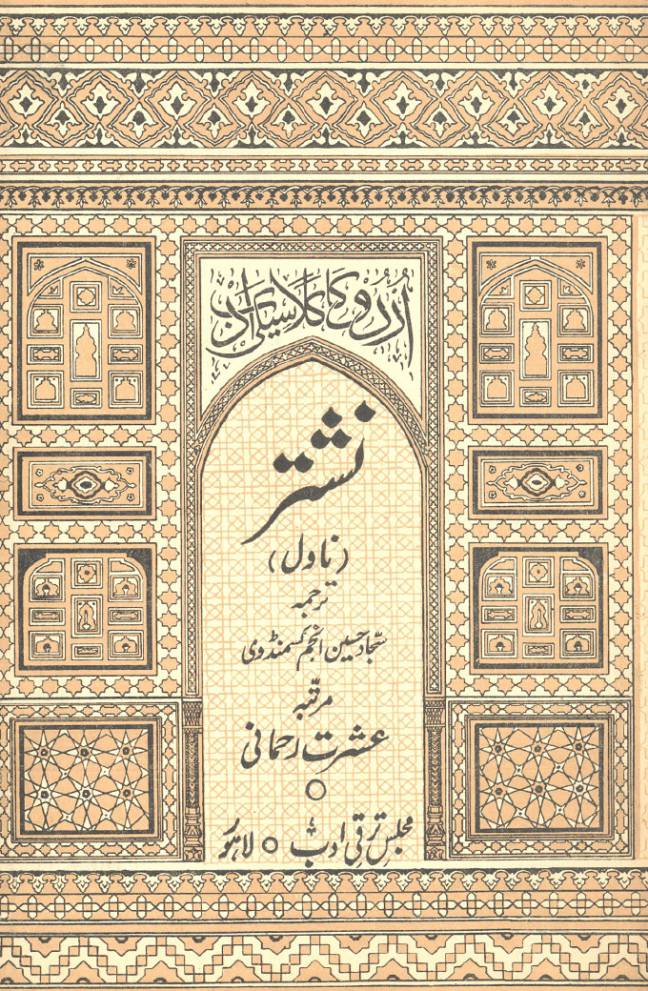 اُردو کا کلاسیکی ادب
نشتر
(ناول)
ترجمہ
سجاد حسین انجم کسمنڈوی
مرتبہ
عشرت رحمانی
مجلسِ ترقیِ ادب ○ لاہور